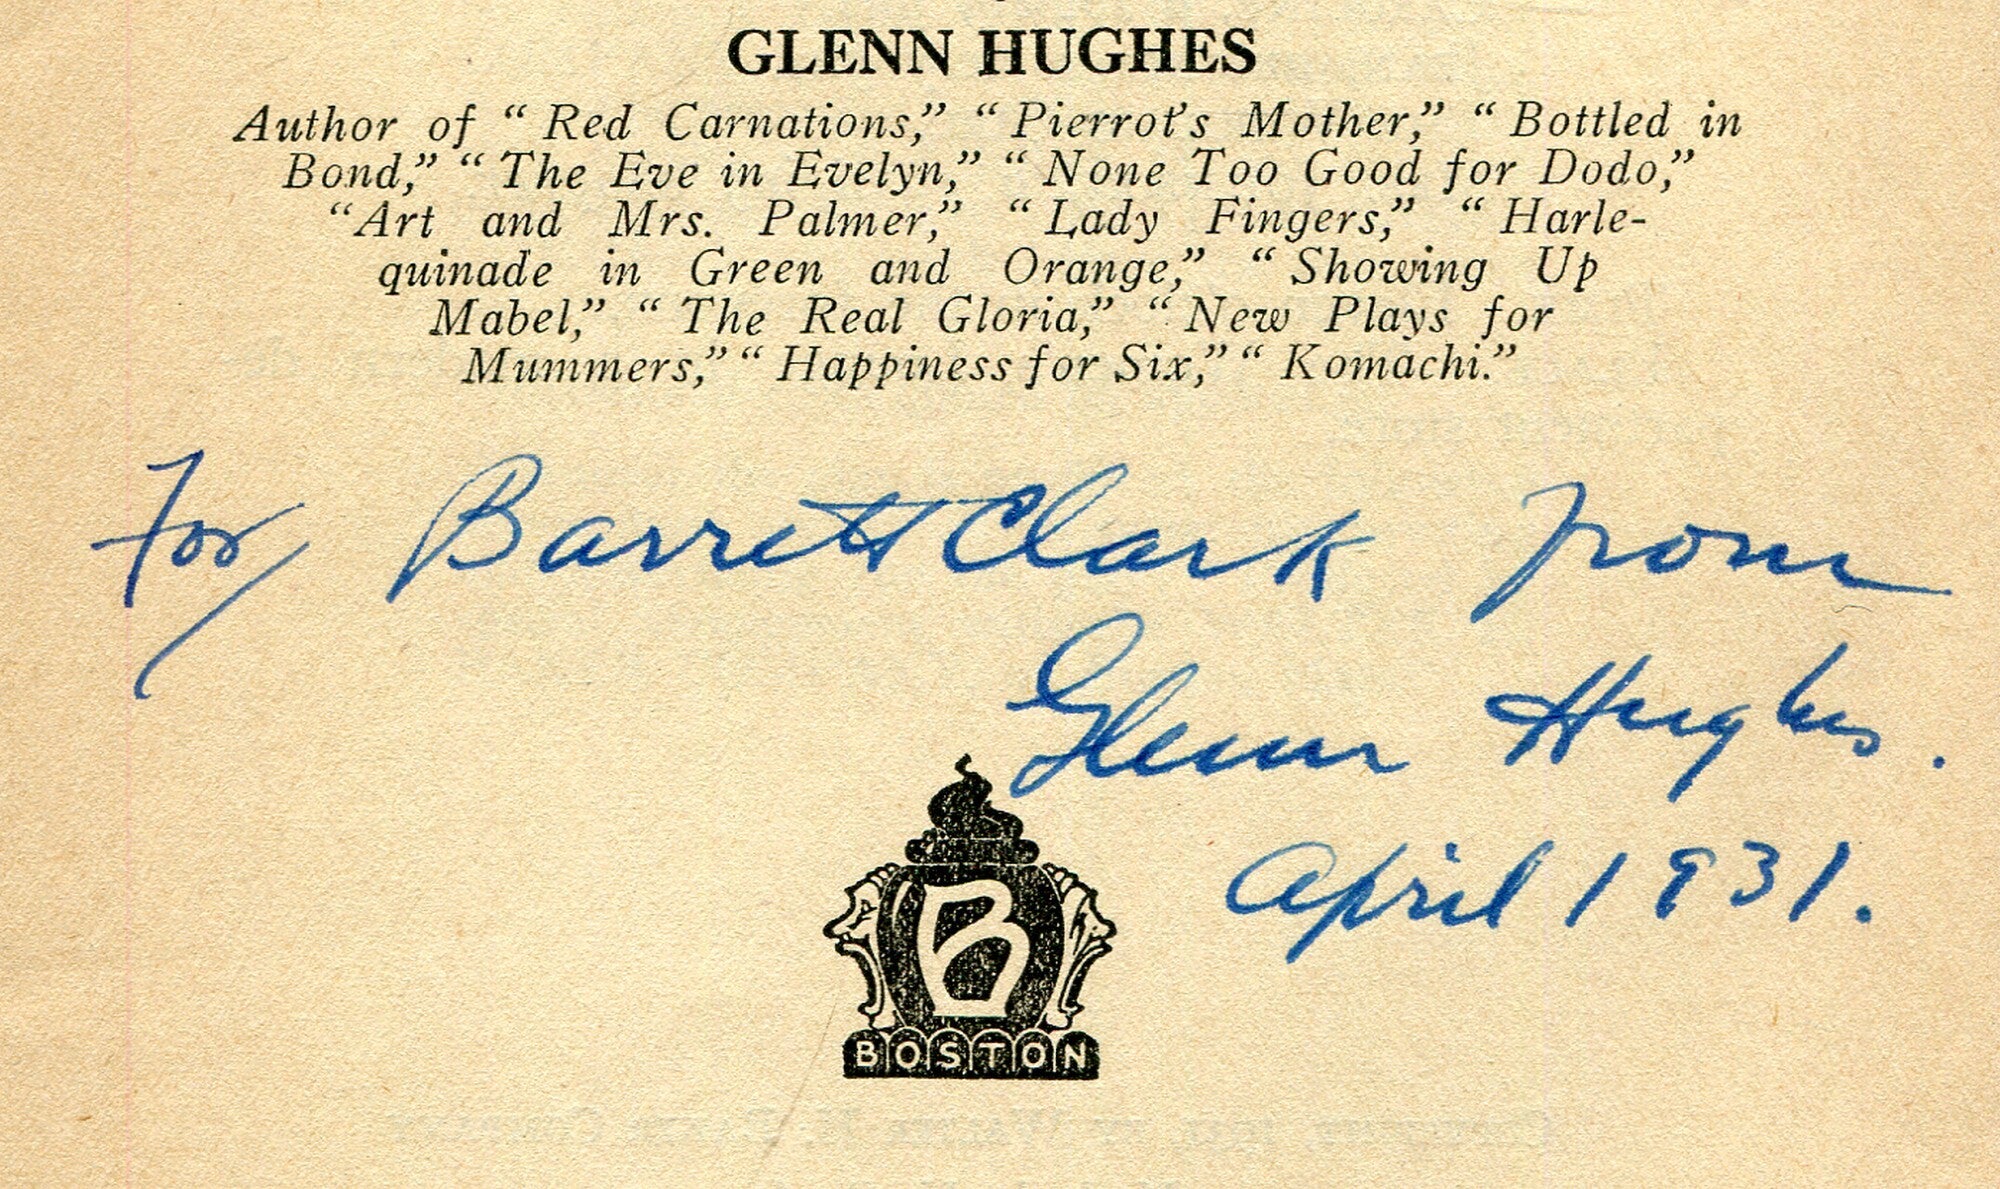 GLENN HUGHES
Author of “Red Carnations,” “Pierrot's Mother,” “Bottled in
Bond,” “The Eve in Evelyn,” “None Too Good for Dodo,”
“Art and Mrs. Palmer,” “Lady Fingers,” “Harle-
quinade in Green and Orange,” “Showing Up
Mabel,” “The Real Gloria,” “New Plays for
Mummers,” “Happiness for Six,” “Komachi.”
For Barrett Clark from
Glenn Hughes.
April 1931.
B
BOSTON